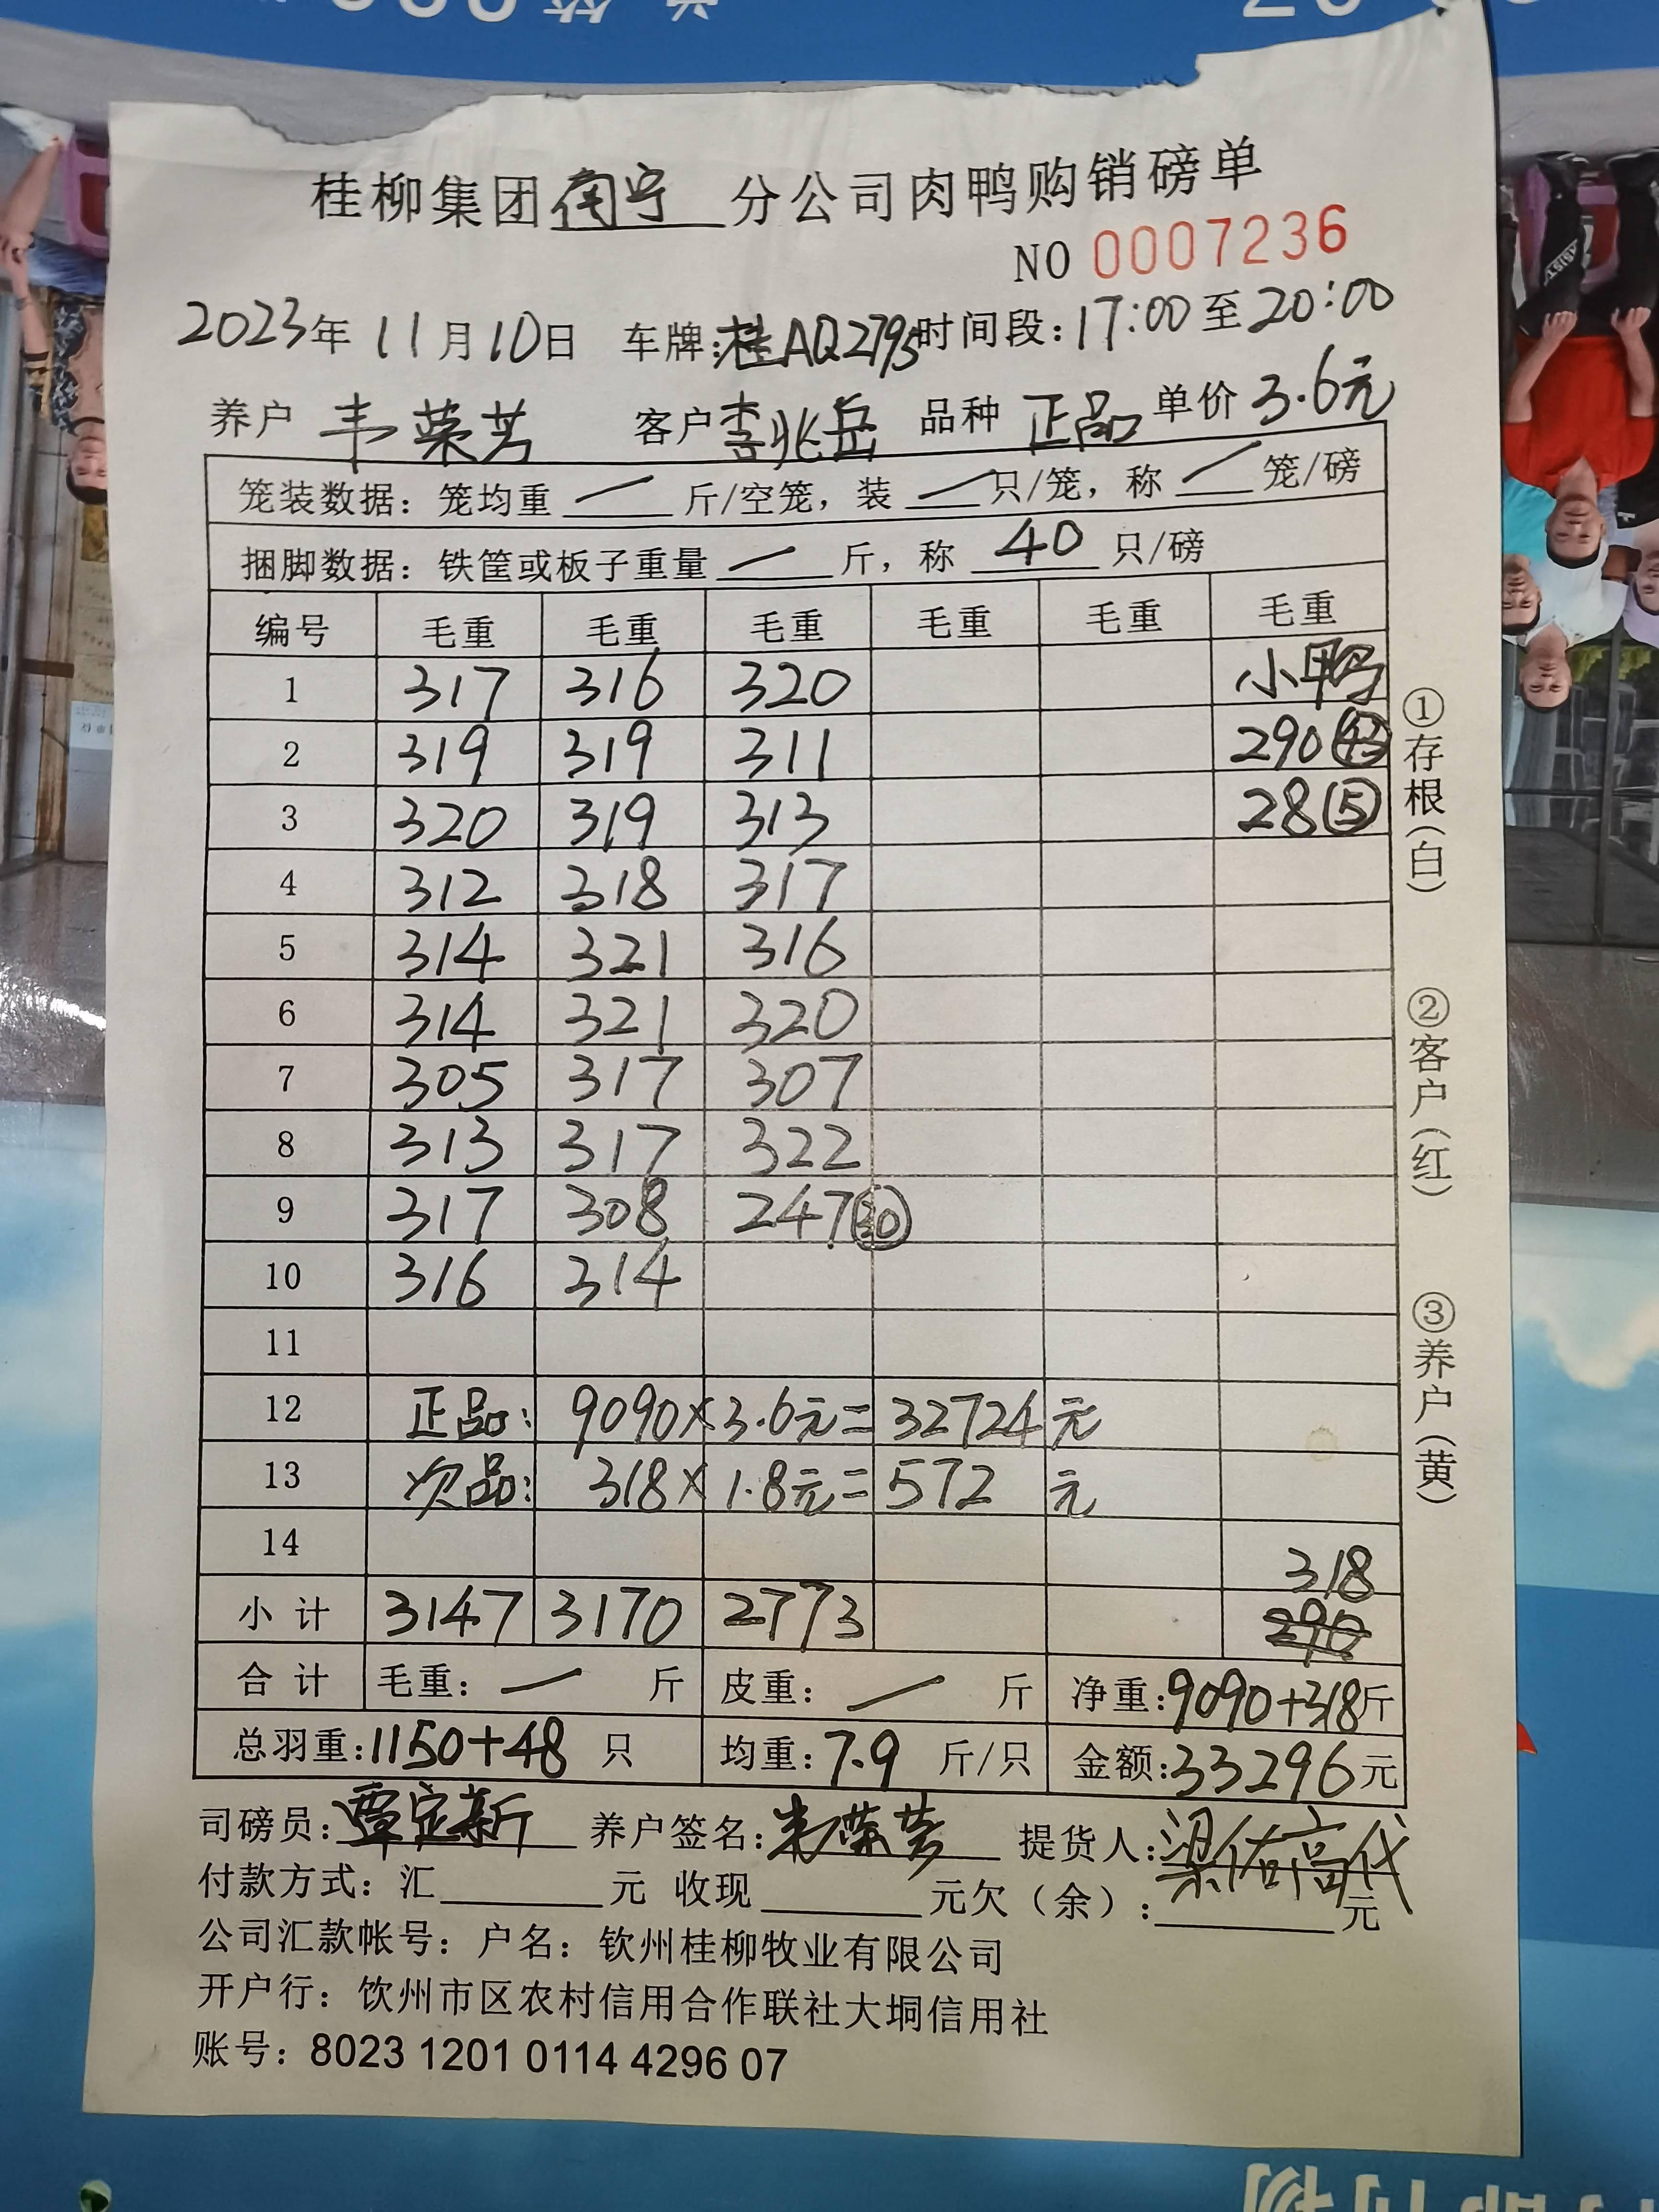 桂柳集团南宁分公司肉鸭购销磅单
NO 0007236
2023年 11月10日 车牌:桂AQ2795 时间段:17:00至20:00
养户 韦荣芳 客户 李兆岳 品种 正品 单价 3.6元
笼装数据: 笼均重 / 斤/空笼, 装 / 只/笼, 称 / 笼/磅
捆脚数据: 铁筐或板子重量 / 斤, 称 40 只/磅
编号 毛重 毛重 毛重 毛重 毛重 毛重
1 317 316 320 小鸭
2 319 319 311 290 43
3 320 319 313 28 5
4 312 318 317
5 314 321 316
6 314 321 320
7 305 317 307
8 313 317 322
9 317 308 247 30
10 316 314
11
12 正品: 9090×3.6元=32724元
13 次品: 318×1.8元=572元
14 318
小计 3147 3170 2773
合计 毛重: / 斤 皮重: / 斤 净重:9090+318斤
总羽重:1150+48 只 均重:7.9 斤/只 金额:33296元
司磅员:覃定新 养户签名:韦荣芳 提货人:梁佑高代
付款方式: 汇 元 收现 元欠(余): 元
公司汇款帐号: 户名: 钦州桂柳牧业有限公司
开户行: 饮州市区农村信用合作联社大垌信用社
账号: 8023 1201 0114 4296 07
①存根(白)
②客户(红)
③养户(黄)